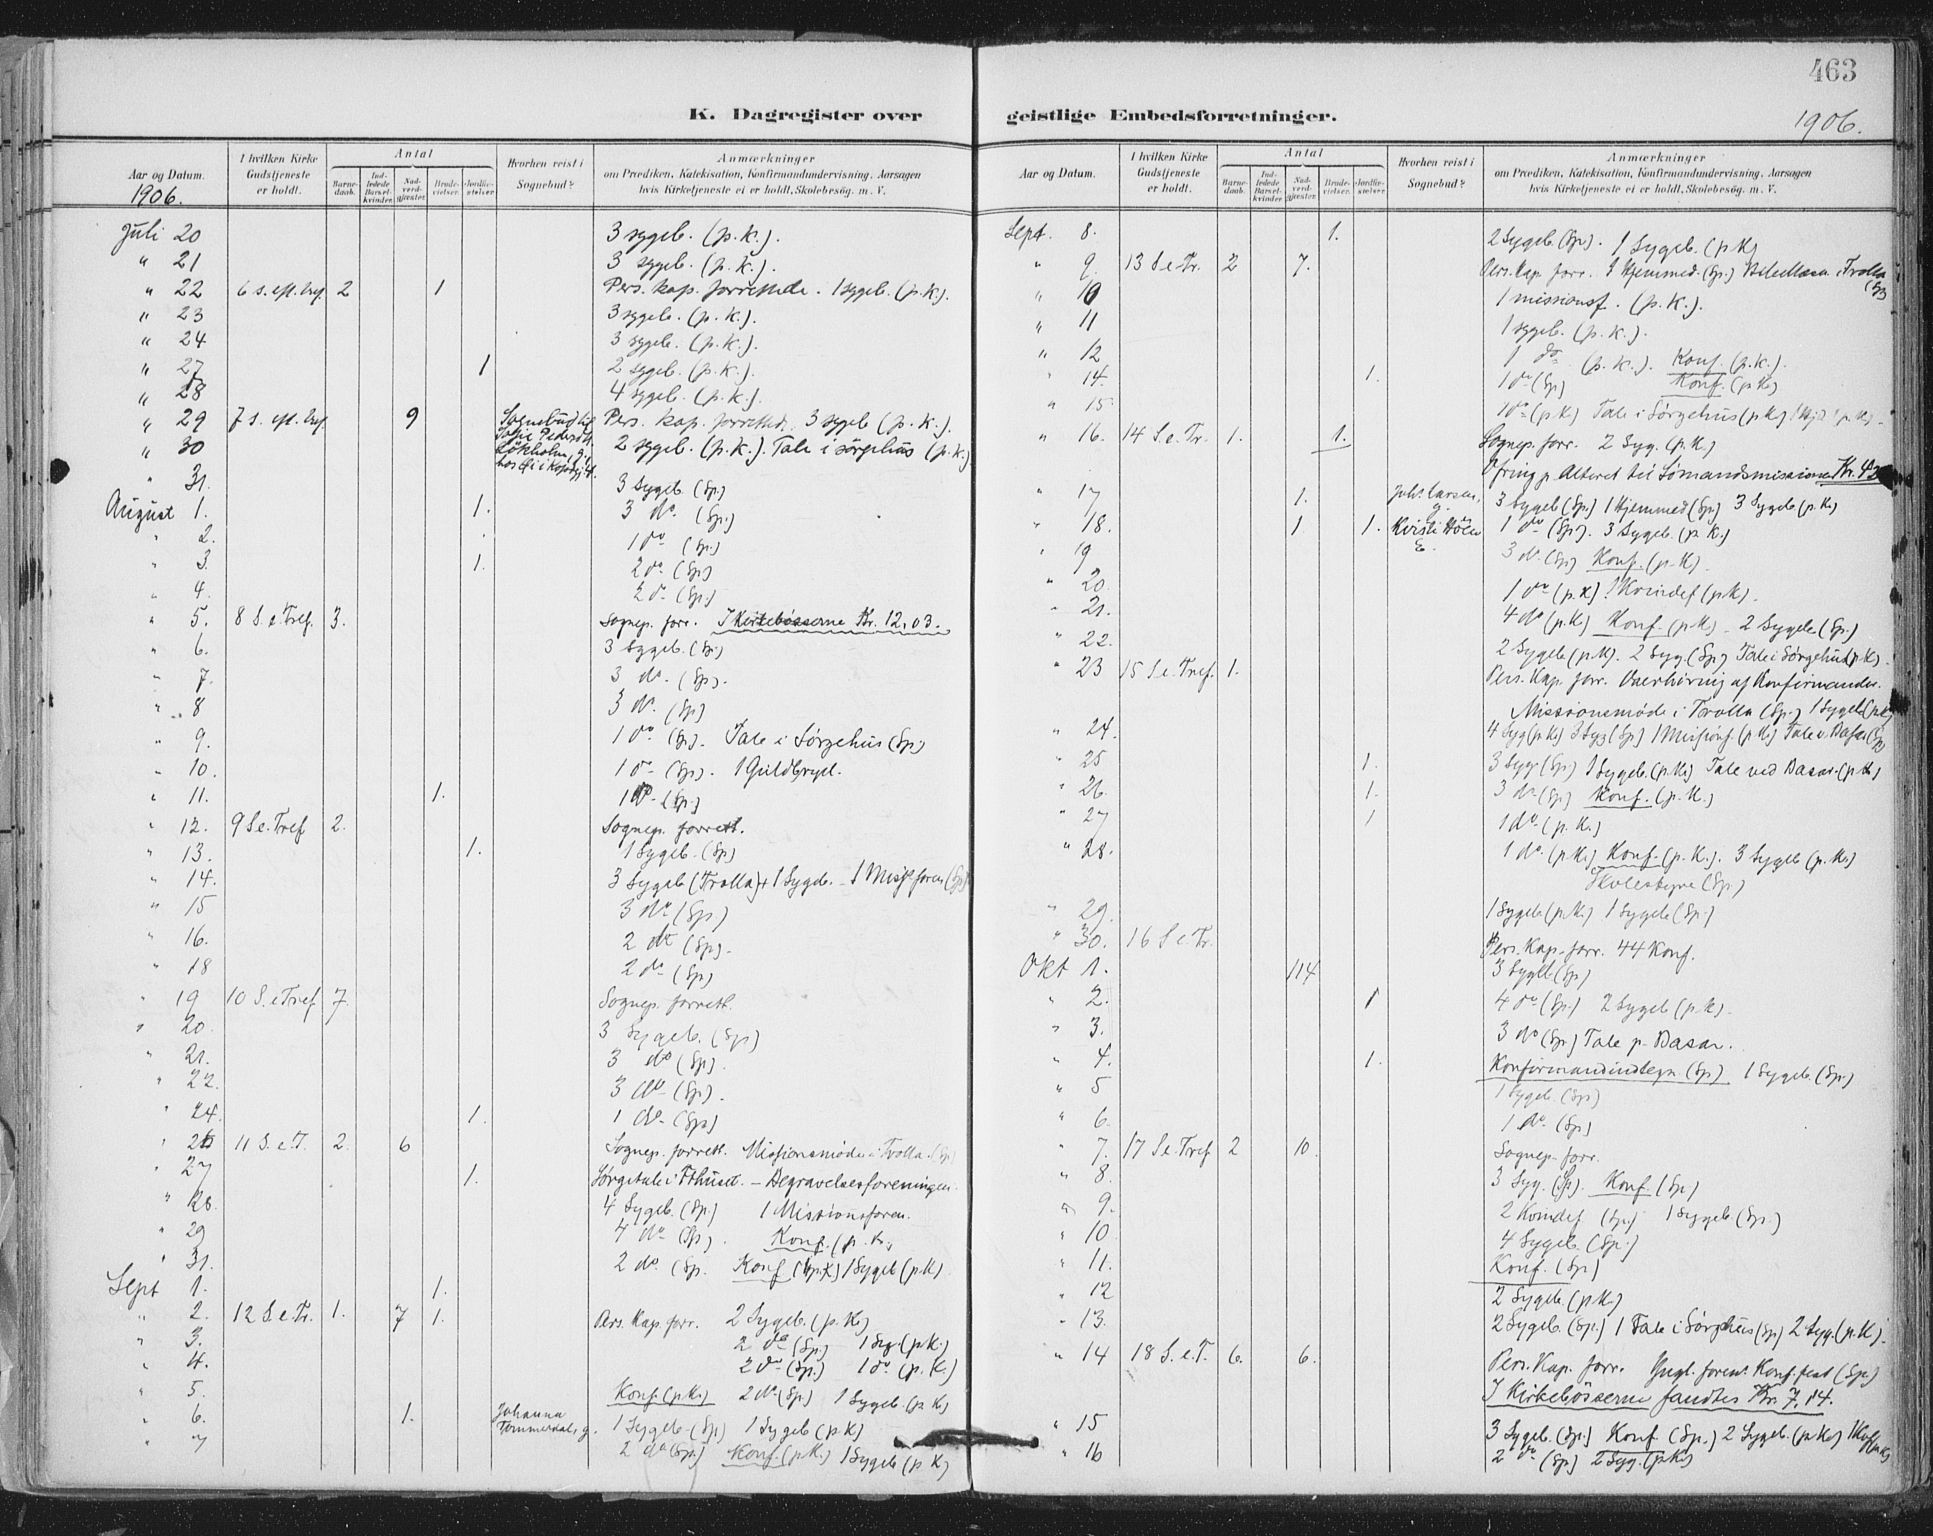 463
K. Dagregister over geistlige Embedsforretninger.
1906.
Aar og Datum. I hvilken Kirke Gudstjeneste er holdt. Antal Barnedaab. Indledede Barselkvinder. Nadverdgjester. Brudevielser. Jordfæstelser. Hvorhen reist i Sognebud? Anmærkninger om Prædiken, Katekisation, Konfirmandundervisning, Aarsagen hvis Kirketjeneste ei er holdt, Skolebesøg. m. V.
1906.
Juli 20 3 sygeb. (p. k.).
" 21 3 sygeb. (p. k.).
" 22 6 s. eft. tref. 2 1 Pers. kap. forrettede. 1 sygeb. (p. k.).
" 23 3 sygeb. (p. k.).
" 24 3 sygeb. (p. k.).
" 27 1 2 sygeb. (p. k.).
" 28 4 sygeb. (p. k.).
" 29 7 s. eft. tref. 9 Sognebud til Pers. kap. forretted. 3 sygeb (p. k.).
" 30 2 sygeb. (p. k.). Tale i sørgehus (p. k.)
" 31. 3 Sygeb (Sp)
August 1. 1. 3 do. (Sp.)
" 2. 1 do (Sp.)
" 3. 1. 2 do (Sp)
" 4. 2 do (Sp.)
" 5. 8 S. e. Tref. 3. Sognep. forr. I Kirkebøsserne Kr. 12,03.
" 6. 3 Sygeb. (Sp.)
" 7. 3 do. (Sp).
" 8 3 do. (Sp)
" 9. 1 do (Sp). Tale i Sørgehus (Sp.)
" 10. 1 do (Sp). 1 Guldbryl.
" 11. 1. 1 do (Sp.)
" 12. 9 S e. Tref 2. Sognep. forrett.
" 13. 1. 1 Sygeb. (Sp)
" 14. 3 Sygeb (Trolla) + 1 Sygeb. - 1 Missforen (Sp)
" 15 3 do (Sp)
" 16. 2 do (Sp).
" 18 2 do (Sp)
" 19 10 S. e Tref 7. Sognep. forrett.
" 20. 3 Sygeb. (Sp)
" 21. 3 do (Sp).
" 22. 3 do (Sp).
" 24. 1. 1 do. (Sp)
" 26 11 S. e. T. 2. 6 Sognep. forrett. Missionsmøde i Trolla. (Sp)
" 27 1. Sørgetale i Fthuset. - Begravelsesforeningen.
" 28. 4 Sygeb. (Sp) 1 Missionsforen.
" 29 4 do (Sp). Konf. (p. k.)
" 31. 2 do. (Sp. Konf (p. k) 1 Sygeb (p k)
Sept 1. 1.
" 2. 12 S. e Tr. 1. 7 1. Pers. Kap. forr. 2 Sygeb. (p. K)
" 3. 2 do (Sp) 1 Syg (p k)
" 4. 2 do (Sp.) 1 do (p. k.)
" 5. Konf. (p k.) 2 do. (Sp) 1 Sygeb. (p k)
" 6. 1. Johanna Tømmerdal, g. 1 Sygeb. (Sp) 1 Sygeb (p k)
" 7 2 do (Sp.) Konf. (p k.) 1 Sygeb (p k)
Aar og Datum. I hvilken Kirke Gudstjeneste er holdt. Antal Barnedaab. Indledede Barselkvinder. Nadverdgjester. Brudevielser. Jordfæstelser. Hvorhen reist i Sognebud? Anmærkninger om Prædiken, Katekisation, Konfirmandundervisning, Aarsagen hvis Kirketjeneste ei er holdt, Skolebesøg. m. V.
Sept. 8. 1. 2 Sygeb. (Sp). 1 Sygeb. (p k)
" 9. 13 S. e. Tr. 2 7. Pers. Kap. forr. 1 Hjemmed. (Sp.) Trolla (Sp)
" 10 1 missionsf. (p. k.).
" 11 1 sygeb. (p. k.).
" 12 1 do (p. k.). Konf. (p. k.).
" 14. 1. 1 do (Sp) Konf. (p k)
" 15. 1 do (p k) Tale i Sørgehus (p k)
" 16. 14 S. e. Tr. 1. 1. Sognep. forr. 2 Syg. (p. k.)
Ofring p. Alteret til Sømandsmissionen Kr.
" 17 1. Joh. Larsen, g. 3 Sygeb (Sp) 1 Hjemmed (Sp) 3 Sygeb (p. k)
" 18. 1 1. 1 do (Sp). 3 Sygeb. (p k.)
" 19 3 do. (Sp) Konf. (p. k).
" 20. 1 do (p. k) 1 Kvindef (p k).
" 21. 4 do (p. k) Konf. (p k.) - 2 Sygeb (Sp.)
" 22. 2 Sygeb (p k). 2 Syg. (Sp) Tale i Sørgehus (p k).
" 23 15 S. e. Tref. 1. Pers. Kap. forr. Overhøring af Konfirmander.
Missionsmøde i Trolla (Sp.) 1 Sygeb (p k)
" 24. 4 Syg (p k) 3 Syg (Sp) 1 Missionsf. (p k) Tale v. Basar (Sp)
" 25 1. 3 Syg. (Sp) 1 Sygeb. (p k) Tale ved Basar. (p k)
" 26. 1. 3 do (Sp) Konf. (p. k.)
" 27 1 1 do. (p. k.)
" 28. 1 do. (p k) Konf. (p. k.). 3 Sygeb (p. k.)
Skolestyre (Sp.)
" 29. 1 Sygeb (p k.) 1 Sygeb (Sp.)
" 30. 16 S e. Tr. Pers. Kap. forr. 44 Konf.
Okt 1. 114 3 Sygeb (Sp)
" 2. 1 4 do (Sp.) 2 Sygeb (p. k).
" 3. 3 do (Sp) Tale p. Basar.
" 4. 1. Konfirmandindtegn (Sp) 1 Sygeb. (Sp.)
" 5 1 Sygeb. (Sp)
" 6. 1 do. (Sp)
" 7. 17 S e. Tref 2 10. Sognep. forr.
" 8. 3 Syg. (Sp). Konf. (Sp)
" 9. 2 Kvindef (Sp.) 1 Sygeb. (Sp.)
" 10. 4 Sygeb. (Sp.)
" 11. Konf. (Sp)
" 12 2 Sygeb. (p k.)
" 13. 2 Sygeb. (Sp.) 1 Tale i Sørgehus (Sp) 2 Syg. (p. k).
" 14 18 S. e. T. 6. 6. Pers. Kap. forr. Yngl. foren. Konf. fest (Sp.)
I Kirkebøsserne fandtes Kr. 7,14.
" 15 3 Sygeb. (Sp.) Konf. (Sp.) 2 Sygeb. (p k)
" 16 2 do (Sp) 2 Syg. (p k)